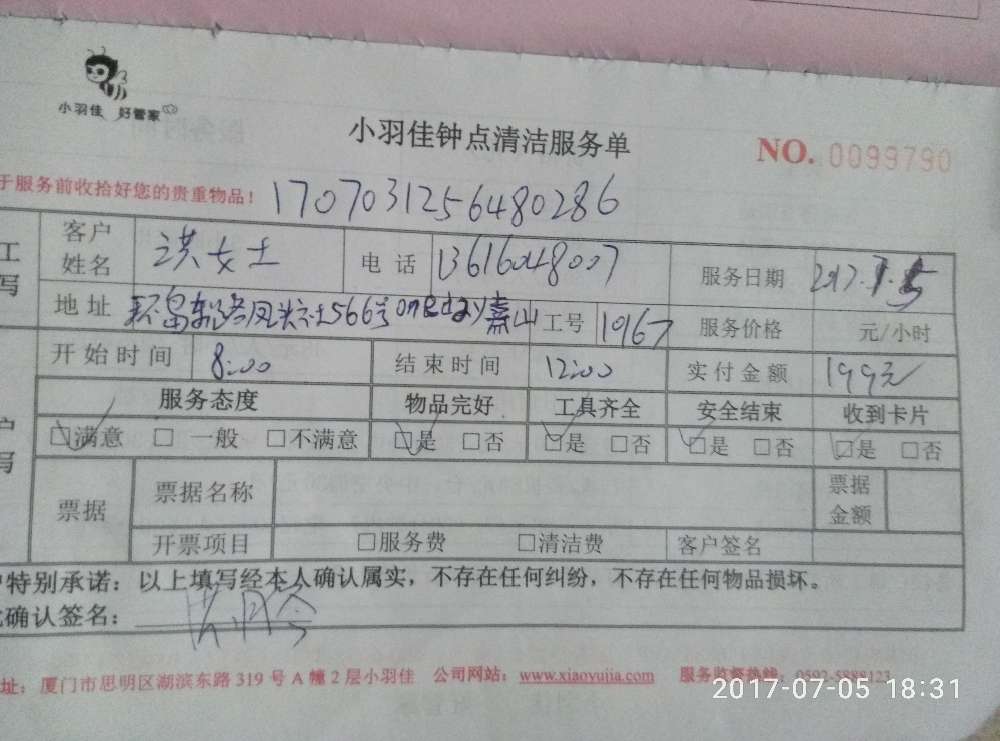 小羽佳 好管家
小羽佳钟点清洁服务单
NO. 0099790
于服务前收拾好您的贵重物品！ 1707031256480286
工
写
客户姓名 洪女士 电话 13616048007 服务日期 2017.7.5
地址 环岛东路凤头社566号 嘉山 工号 10167 服务价格 元/小时
开始时间 8:00 结束时间 12:00 实付金额 199元
服务态度 物品完好 工具齐全 安全结束 收到卡片
户
写
☑满意 □一般 □不满意 ☑是 □否 ☑是 □否 ☑是 □否 ☑是 □否
票据 票据名称 票据金额
开票项目 □服务费 □清洁费 客户签名
户特别承诺：以上填写经本人确认属实，不存在任何纠纷，不存在任何物品损坏。
确认签名：
址：厦门市思明区湖滨东路 319 号 A 幢 2 层小羽佳 公司网站：www.xiaoyujia.com 服务监督热线：0592-5888123
2017-07-05 18:31